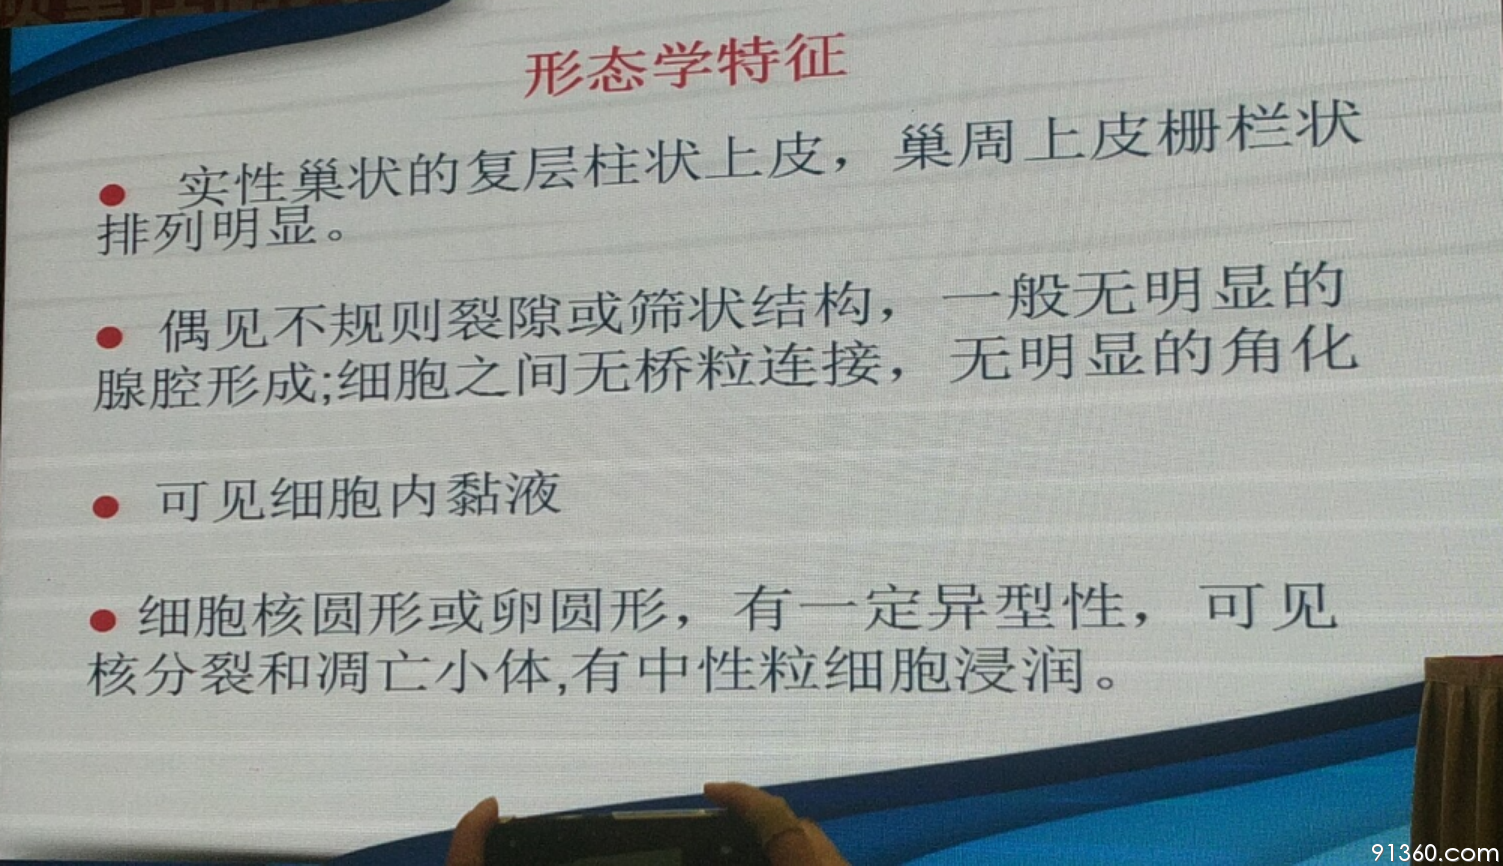 形态学特征
● 实性巢状的复层柱状上皮，巢周上皮栅栏状
排列明显。
● 偶见不规则裂隙或筛状结构，一般无明显的
腺腔形成;细胞之间无桥粒连接，无明显的角化
● 可见细胞内黏液
● 细胞核圆形或卵圆形，有一定异型性，可见
核分裂和凋亡小体,有中性粒细胞浸润。
91360.com